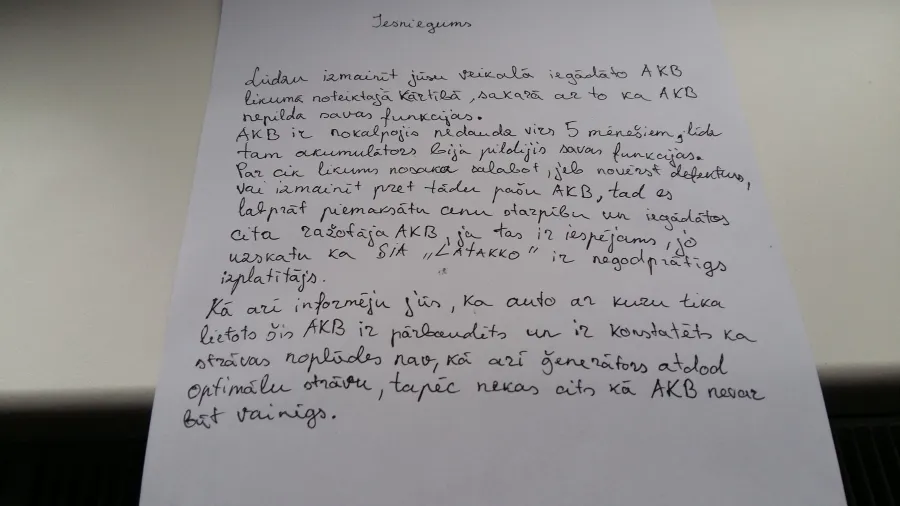 Iesniegums
Lūdzu izmainīt jūsu veikalā iegādāto AKB
likumā noteiktajā kārtībā, sakarā ar to ka AKB
nepilda savas funkcijas.
AKB ir nokalpojis nedaudz virs 5 mēnešiem, līdz
tam akumulātors bija pildījis savas funkcijas.
Par cik likums nosaka salabot, jeb novērst defektus,
vai izmainīt pret tādu pašu AKB, tad es
labprāt piemaksātu cenu starpību un iegādātos
cita ražotāja AKB, ja tas ir iespējams, jo
uzskatu ka SIA „LATAKKO" ir negodprātīgs
izplatītājs.
Kā arī informēju jūs, ka auto ar kuru tika
lietots šis AKB ir pārbaudīts un ir konstatēts ka
strāvas noplūdes nav, kā arī ģenerātors atdod
optimālu strāvu, tapēc nekas cits kā AKB nevar
būt vainīgs.